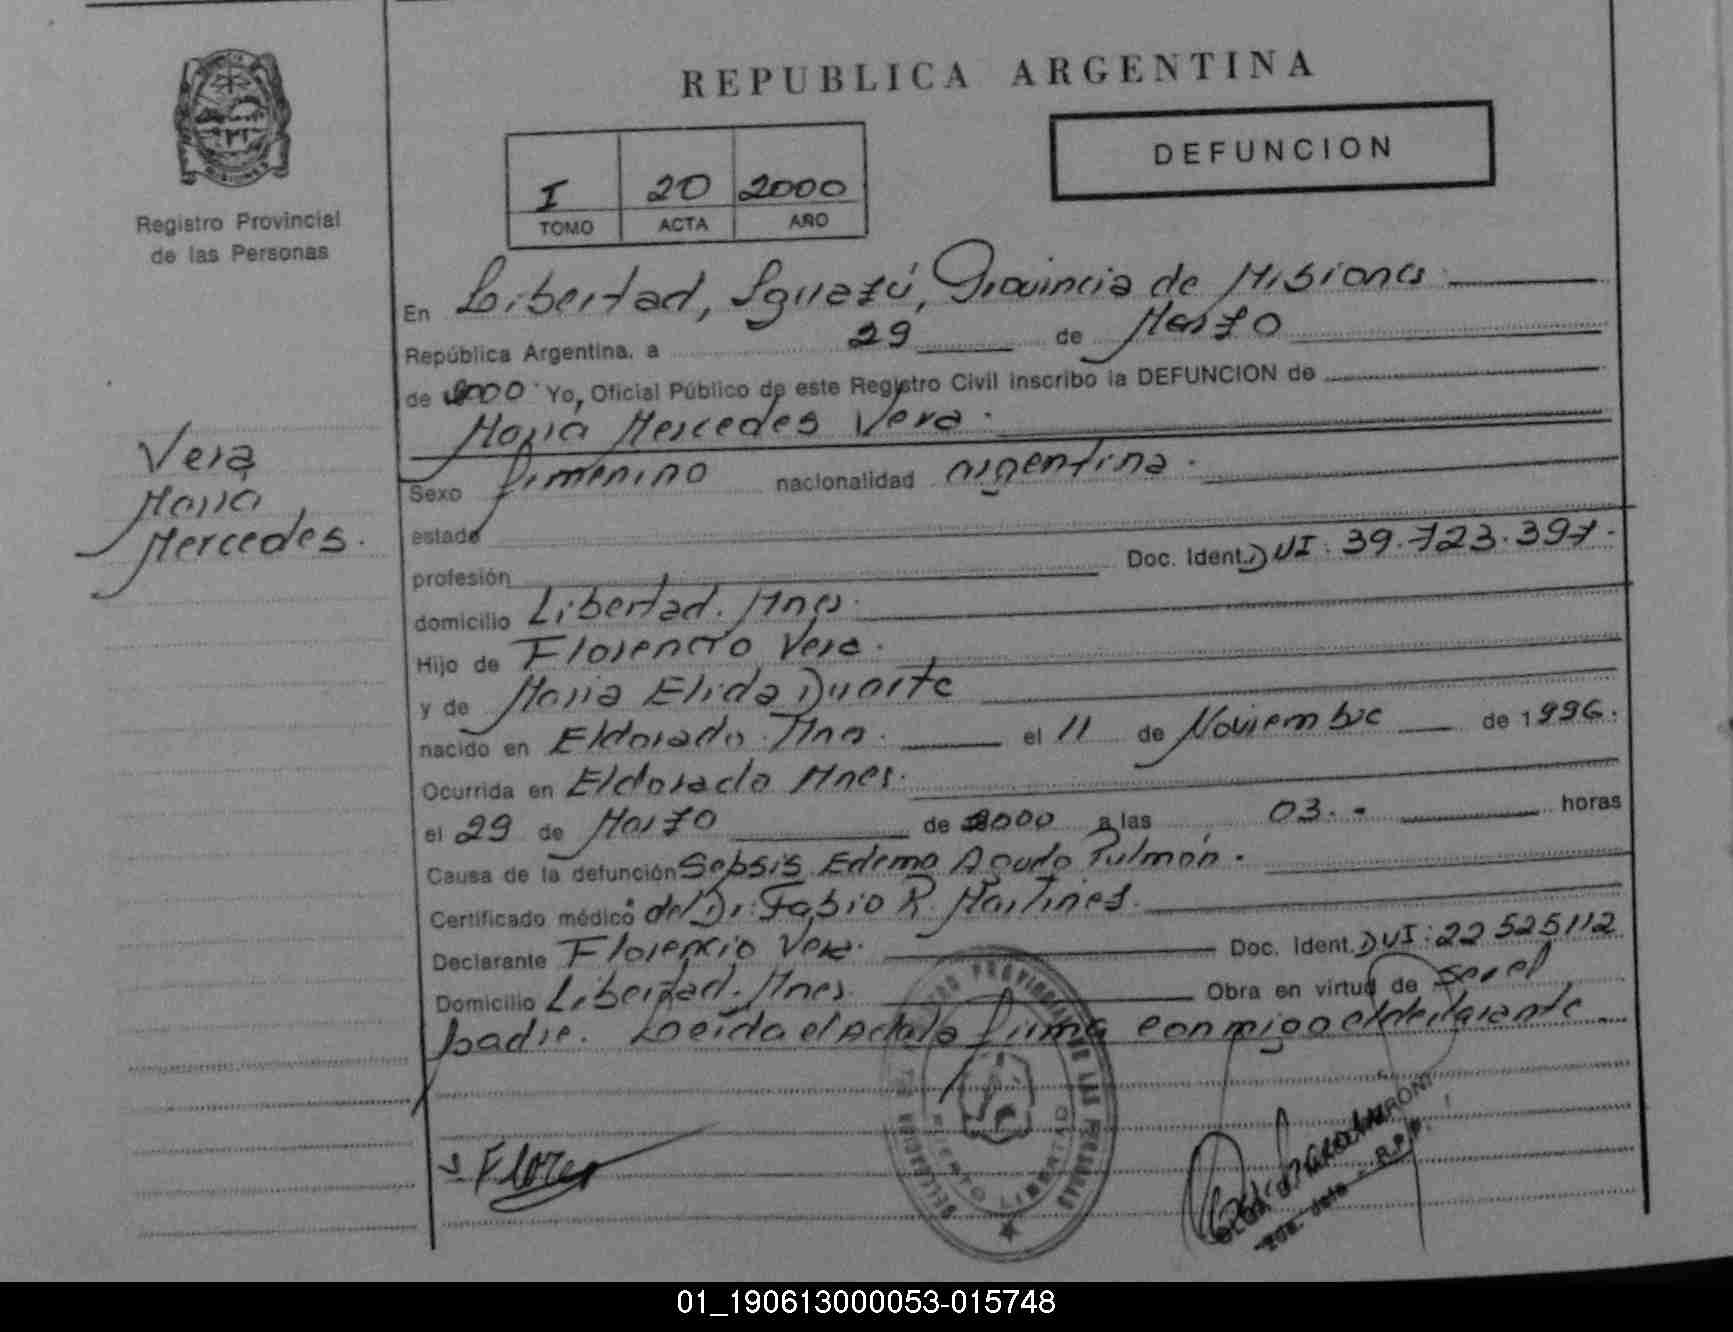 REPUBLICA ARGENTINA
DEFUNCION
I 20 2000
TOMO ACTA AÑO
Registro Provincial
de las Personas
Vera
Maria
Mercedes.
En Libertad, Iguazú, Provincia de Misiones
República Argentina, a 29 de Marzo
de 2000 Yo, Oficial Público de este Registro Civil inscribo la DEFUNCION de
Maria Mercedes Vera.
Sexo femenino nacionalidad argentina.
estado
profesión Doc. Ident. DUI: 39.723.397.
domicilio Libertad. Mnes.
Hijo de Florencio Vera.
y de Maria Elida Duarte
nacido en Eldorado. Mnes. el 11 de Noviembre de 1996.
Ocurrida en Eldorado Mnes.
el 29 de Marzo de 2000 a las 03.- horas
Causa de la defunción Sepsis Edema Agudo Pulmón.
Certificado médico del Dr. Fabio R. Martines.
Declarante Florencio Vera. Doc. Ident. DUI: 22525112
Domicilio Libertad. Mnes. Obra en virtud de ser el
padre. Leída el Acta la firma conmigo el declarante
DELEGACION
REGISTRO PROVINCIAL DE LAS PERSONAS
R.P.P.
01_190613000053-015748